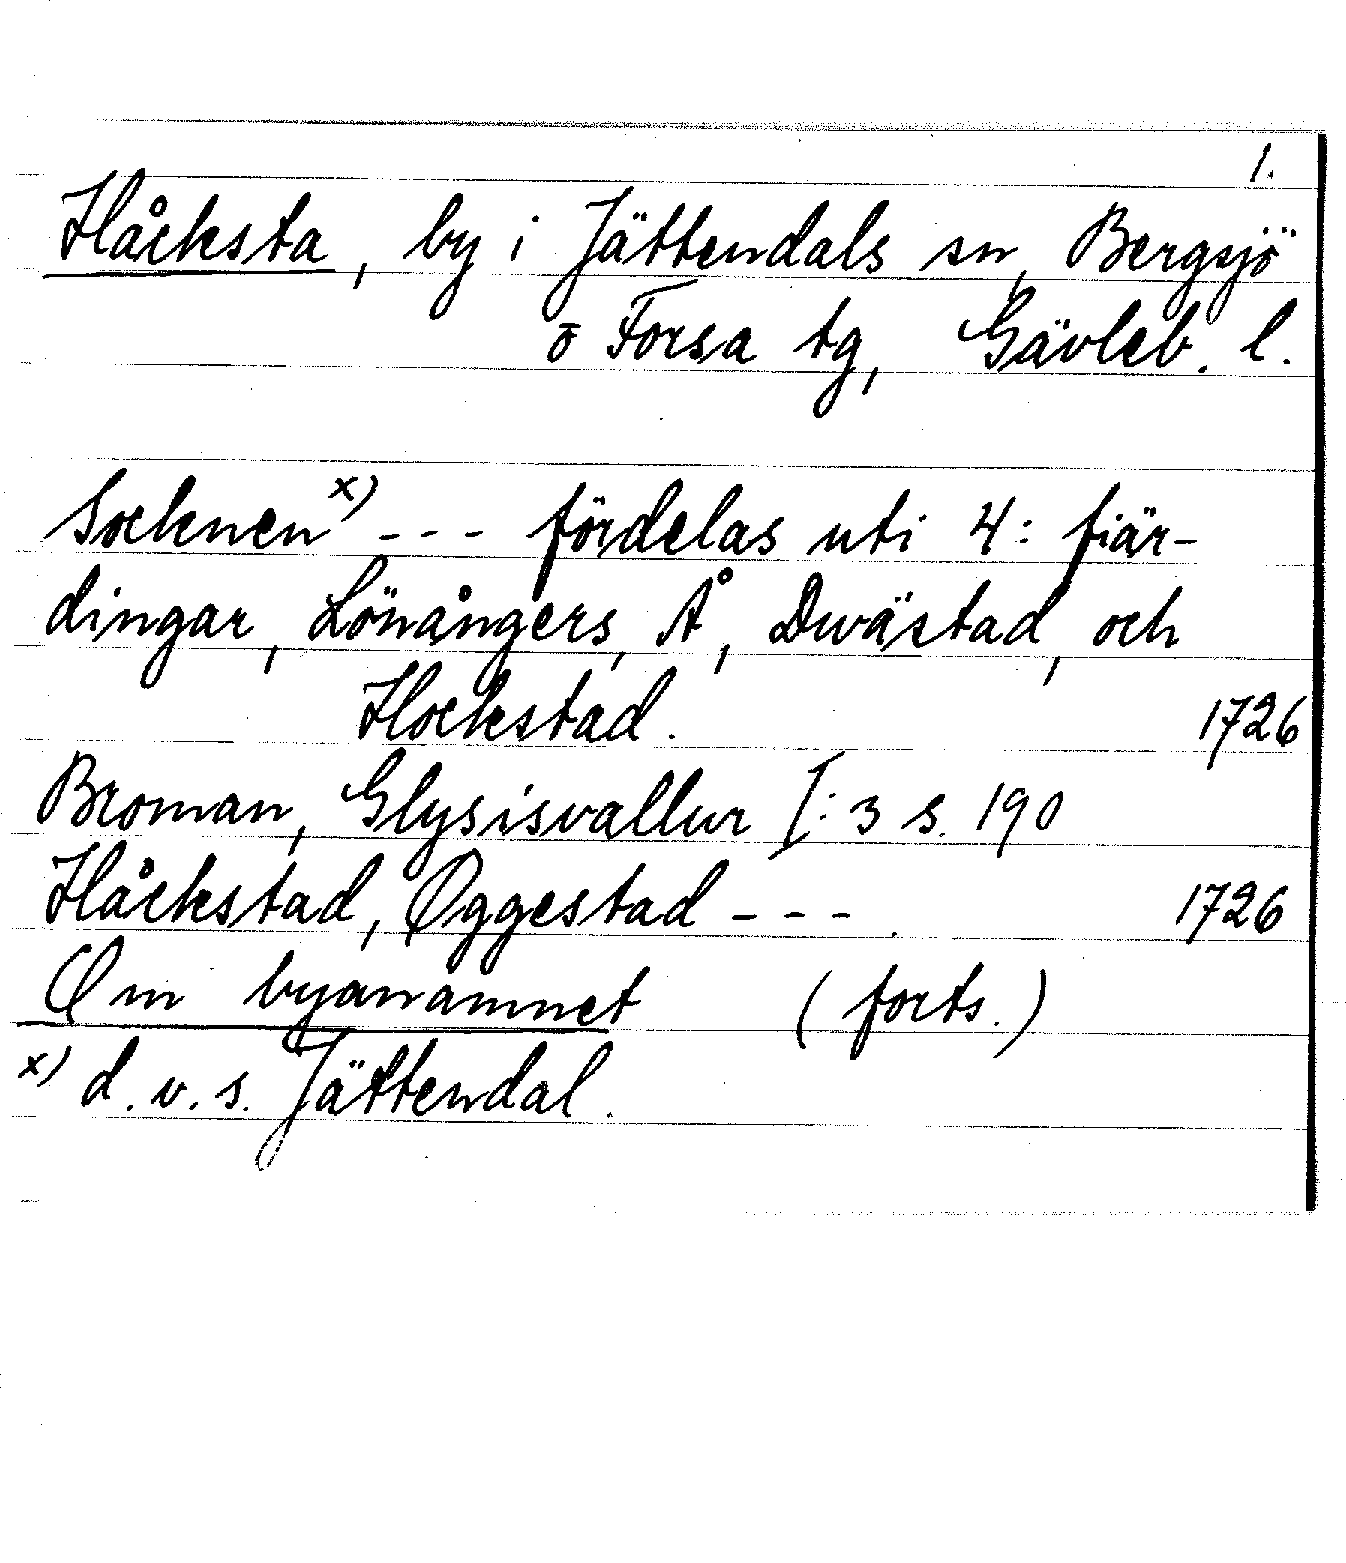 1.
Håcksta, by i Jättendals sn, Bergsjö
o Forsa tg, Gävleb. l.
Socknen x) --- fördelas uti 4: fiär-
dingar, Lönångers, Å, Dwästad, och
Hockstad. 1726
Broman, Glysisvallur I: 3 s. 190
Håckstad, Oggestad --- . 1726
Om byanamnet (forts.)
x) d.v.s. Jättendal.